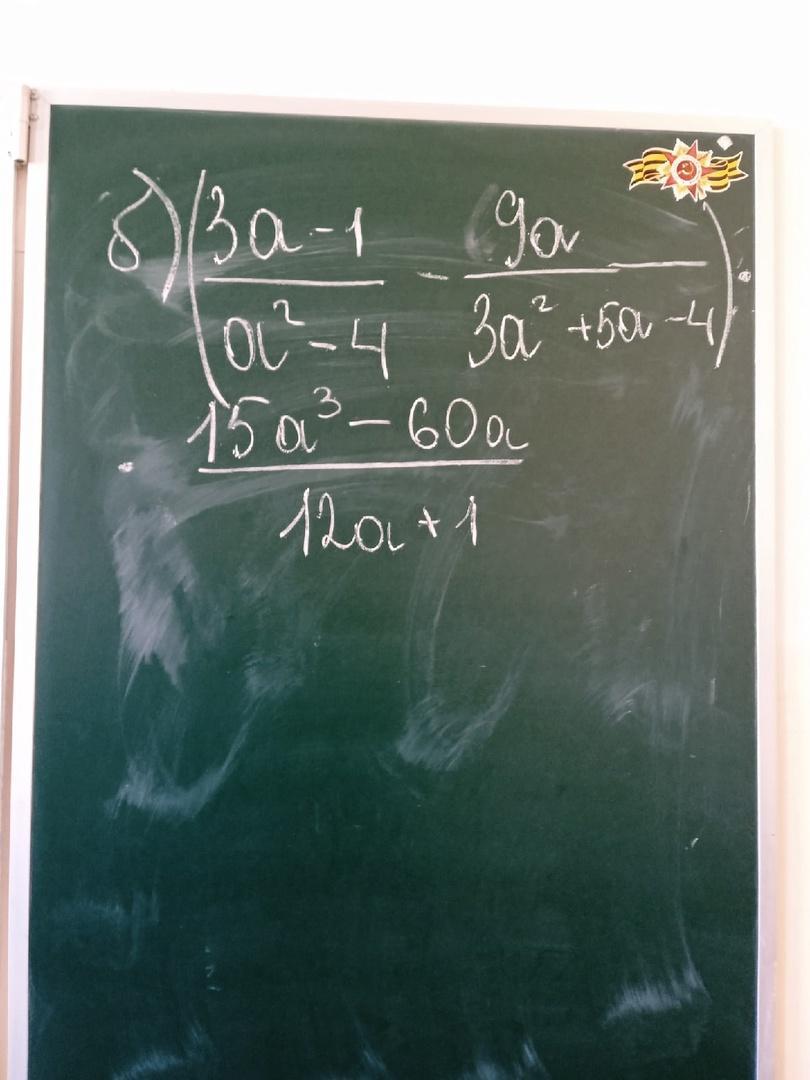 б) ( (3a - 1)/(a² - 4) - 9a/(3a² + 5a - 4) ) ·
· (15a³ - 60a)/(12a + 1)